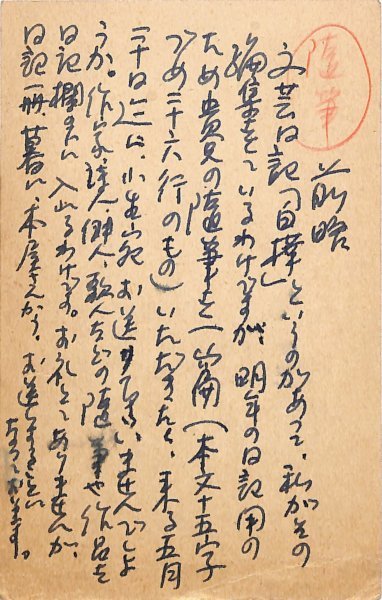 随筆
前略
文芸日記「自撰」というのがあって、私がその
編集をしているわけですが、明年の日記用の
ため貴兄の随筆を一篇(本文十五字
づめ二十六行のもの)いただきたく、来る五月
二十日迄に、小生宛お送り下さいませんでしょ
うか。作家、詩人、俳人、歌人などの随筆や作品を
日記欄の上に入れるわけです。お礼とてありませんが、
日記一冊、暮に、本屋さんから、お送りすることに
なっております。